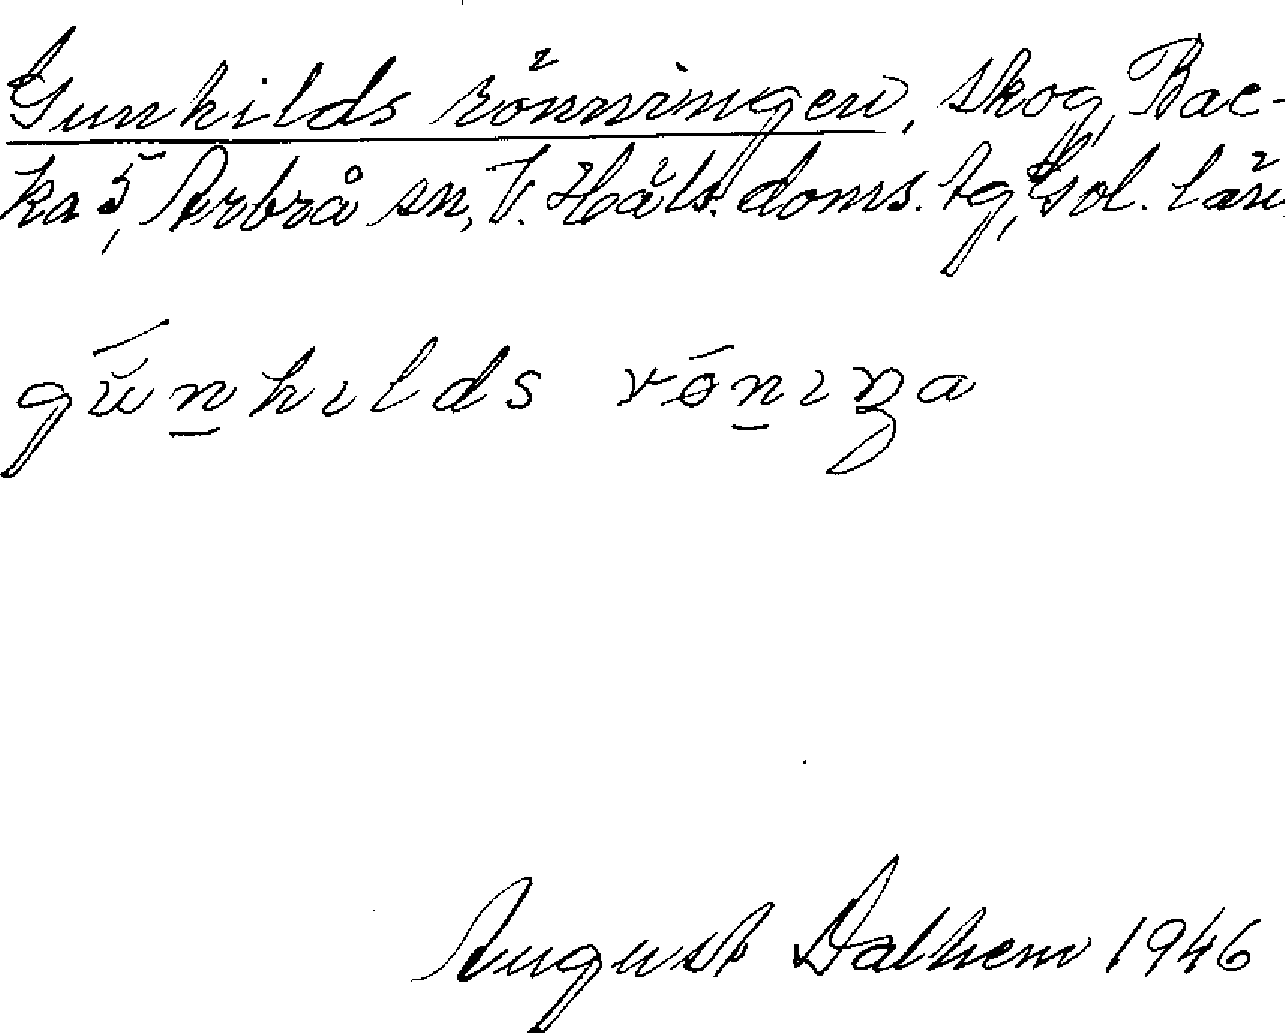 Gunhilds rönningen, skog, Bac-
ka 5, Arbrå sn, V. Häls. doms. tg, Gävl. län
gu̇nhılds rönıŋa
August Dalhem 1946